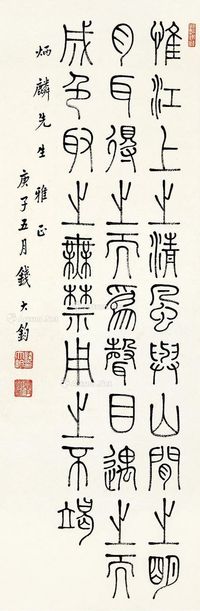 惟江上之清風與山間之明
月耳得之而爲聲目遇之而
成色取之無禁用之不竭
炳麟先生雅正
庚子五月錢大鈞